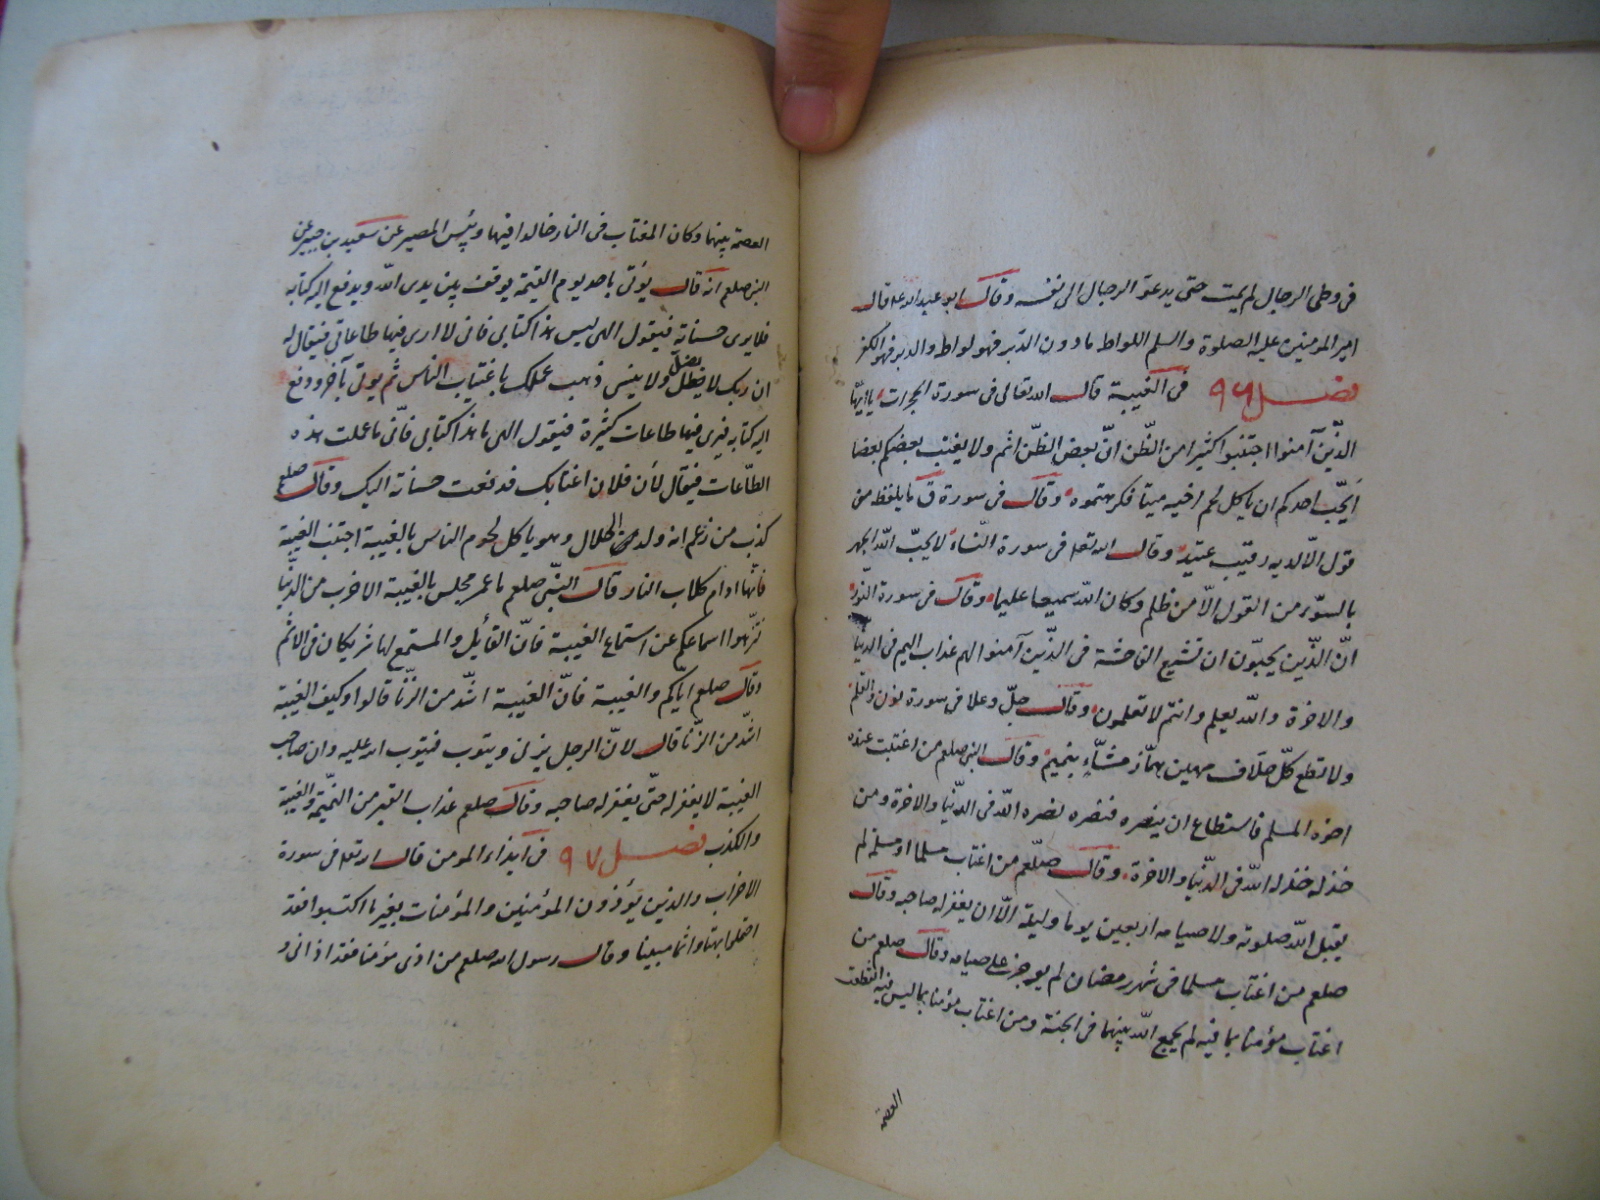 فى وطى الرجال لم يمت حتى يدعو الرجال الى نفسه وقال ابو عبد الله ع قال
امير المومنين عليه الصلوة والسلم اللواط مادون الدبر فهو لواط والدبر فهو الكفر
فصل ٩٦ فى الغيبة قال الله تعالى فى سورة الحجرات يا ايّها
الذّين آمنوا اجتنبوا كثيرا من الظّن انّ بعض الظّن اثم ولا يغتب بعضكم بعضا
أيحّب احدكم ان ياكل لحم اخيه ميتا فكرهتموه وقال فى سورة ق ما يلفظ من
قول الّا لديه رقيب عتيد وقال الله تعا فى سورة النّساء لا يحبّ الله الجهر
بالسّوء من القول الّا من ظلم وكان الله سميعا عليما وقال فى سورة النور
انّ الذّين يحبّون ان تشيع الفاحشة فى الذّين آمنوا لهم عذاب اليم فى الدنيا
والاخرة والله يعلم وانتم لا تعلمون وقال جلّ وعلا فى سورة نون والقلم
ولا تطع كلّ حلّاف مهين همّاز مشّاءٍ بنميم وقال النبى صلعم من اغتيب عنده
اخوه المسلم فاستطاع ان ينصره فنصره نصره الله فى الدّنيا والاخرة ومن
خذله خذله الله فى الدّنيا والاخرة وقال صلّعم من اغتاب مسلما او مسلمة لم
يقبل الله صلوته ولا صيامه اربعين يوما وليلة الّا ان يغفر له صاحبه وقال
صلعم من اغتاب مسلما فى شهر رمضان لم يوجر على صيامه وقال صلعم من
اغتاب مؤمنا بما فيه لم يجمع الله بينهما فى الجنة ومن اغتاب مؤمنا بما ليس فيه انقطعت
العصمة
العصمة بينهما وكان المغتاب فى النار خالدا فيها وبئس المصير عن سعيد بن جبير عن
النبى صلعم انه قال يؤتى باحد يوم القيمة يوقف بين يدى الله ويدفع اليه كتابه
فلا يرى حسناته فيقول الهى ليس هذا كتابى فانى لا ارى فيها طاعاتى فيقال له
ان ربك لا يضل ولا ينسى ذهب عملك باغتياب الناس ثم يوتى بآخر ودفع
اليه كتابه فيرى فيها طاعات كثيرة فيقول الهى ما هذا كتابى فانّى ما عملت هذه
الطّاعات فيقال لان فلان اغتابك فدفعت حسناته اليك وقال صلعم
كذب من زعم انه ولد من الحلال وهو ياكل لحوم الناس بالغيبة اجتنب الغيبة
فانّها ادام كلاب النار قال النبّى صلعم ما عمر مجلس بالغيبة الا خرب من الدّنيا
نزّهوا اسماعكم عن استماع الغيبة فانّ القائل والمستمع لها شريكان فى الاثم
وقال صلعم ايّاكم والغيبة فانّ الغيبة اشّد من الزّنا قالوا وكيف الغيبة
اشّد من الزّنا قال لانّ الرجل يزنى ويتوب فيتوب الله عليه وان صاحب
الغيبة لا يغفر له حتّى يغفر له صاحبه وقال صلعم عذاب القبر من النّميمة والغيبة
والكذب فصل ٩٧ فى ايذاء المومن قال الله تعا فى سورة
الاحزاب والذين يؤذون المؤمنين والمؤمنات بغير ما اكتسبوا فقد
احتملوا بهتانا واثما مبينا وقال رسول الله صلعم من اذى مؤمنا فقد اذانى و